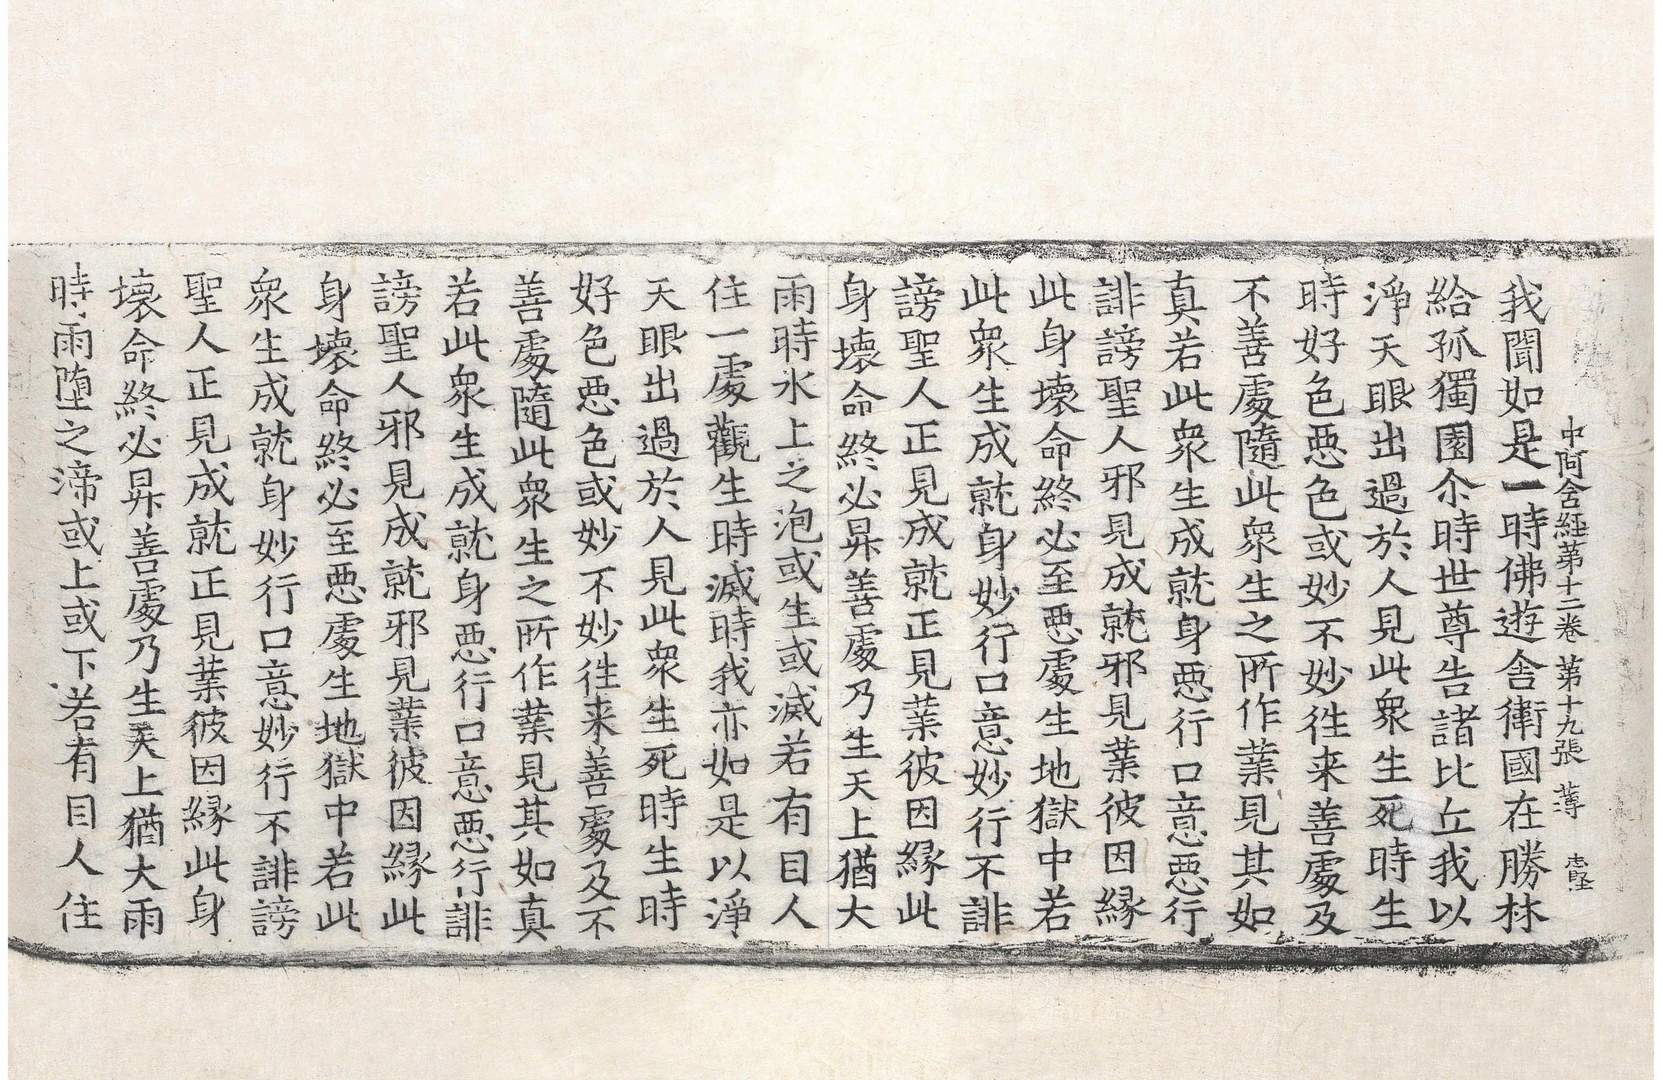 中阿含經第十二卷 第十九張 薄
我聞如是一時佛遊舍衛國在勝林
給孤獨園尒時世尊告諸比丘我以
淨天眼出過於人見此衆生死時生
時好色惡色或妙不妙徃来善處及
不善處隨此衆生之所作業見其如
真若此衆生成就身惡行口意惡行
誹謗聖人邪見成就邪見業彼因緣
此身壞命終必至惡處生地獄中若
此衆生成就身妙行口意妙行不誹
謗聖人正見成就正見業彼因緣此
身壞命終必昇善處乃生天上猶大
雨時水上之泡或生或滅若有目人
住一處觀生時滅時我亦如是以淨
天眼出過於人見此衆生死時生時
好色惡色或妙不妙徃来善處及不
善處隨此衆生之所作業見其如真
若此衆生成就身惡行口意惡行誹
謗聖人邪見成就邪見業彼因緣此
身壞命終必至惡處生地獄中若此
衆生成就身妙行口意妙行不誹謗
聖人正見成就正見業彼因緣此身
壞命終必昇善處乃生天上猶大雨
時雨墮之渧或上或下若有目人住